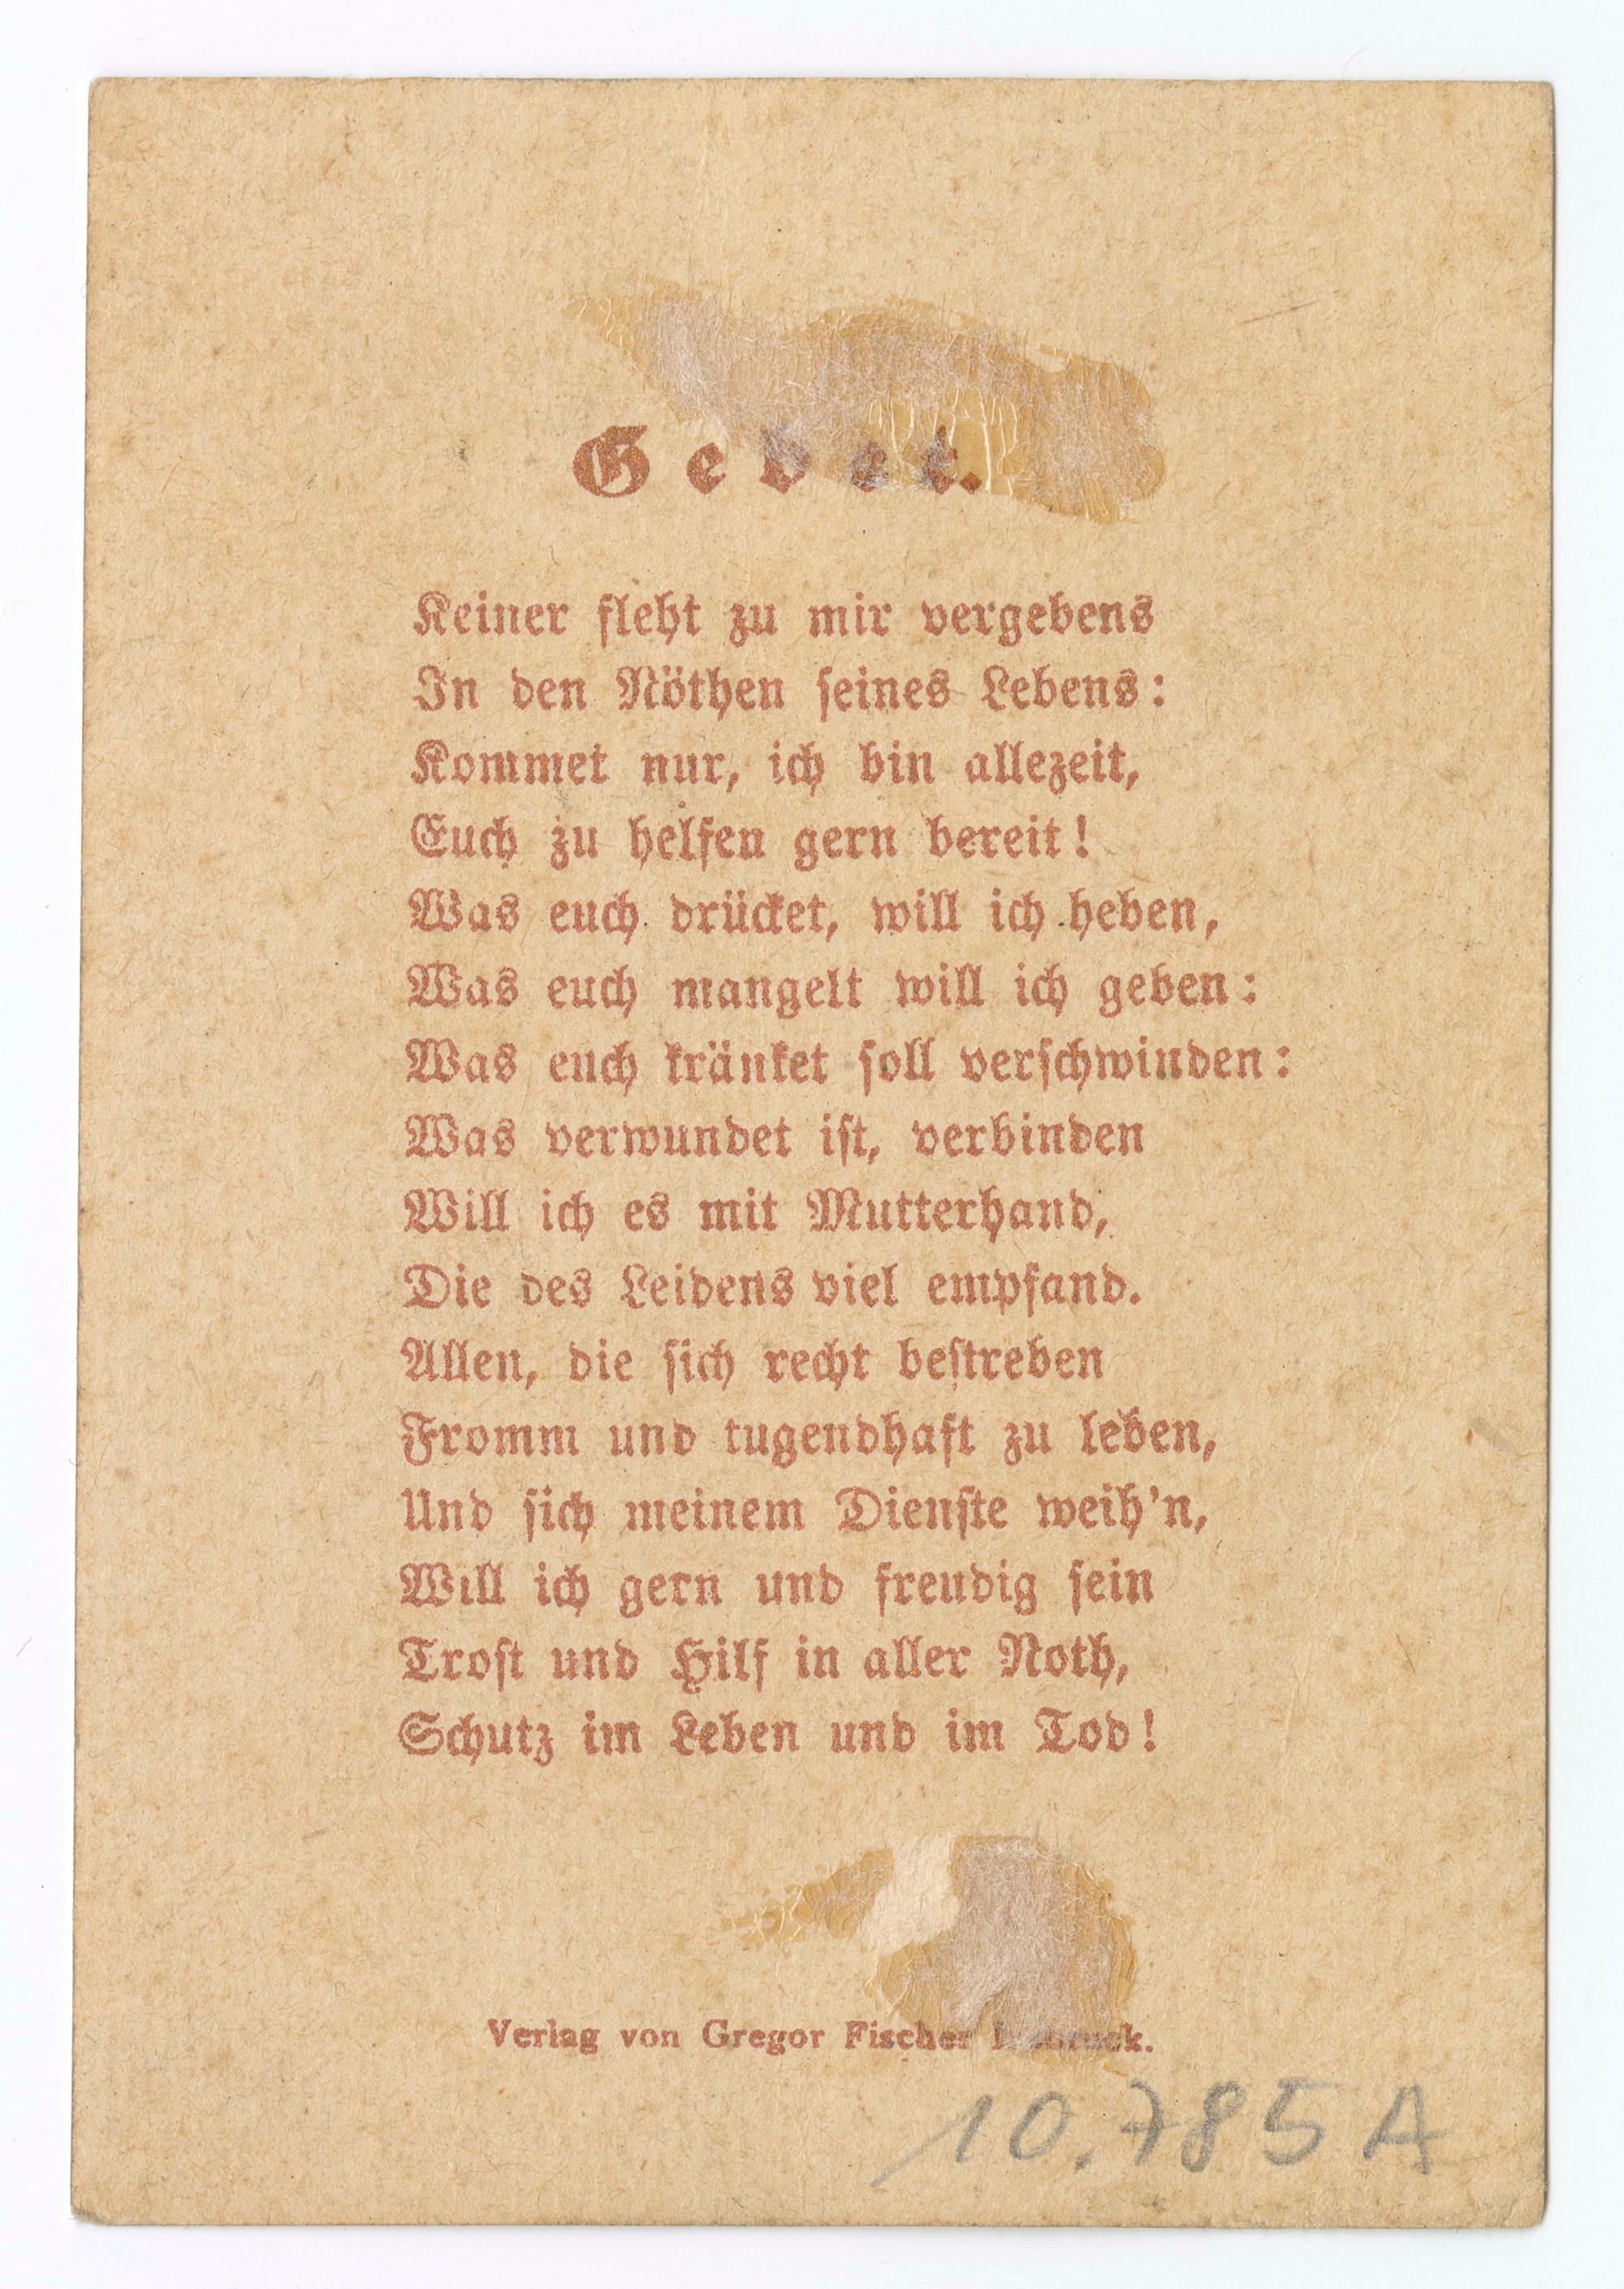 Gebet.
Keiner fleht zu mir vergebens
In den Nöthen seines Lebens:
Kommet nur, ich bin allezeit,
Euch zu helfen gern bereit!
Was euch drücket, will ich heben,
Was euch mangelt will ich geben:
Was euch kränket soll verschwinden:
Was verwundet ist, verbinden
Will ich es mit Mutterhand,
Die des Leidens viel empfand.
Allen, die sich recht bestreben
Fromm und tugendhaft zu leben,
Und sich meinem Dienste weih'n,
Will ich gern und freudig sein
Trost und Hilf in aller Noth,
Schutz im Leben und im Tod!
Verlag von Gregor Fischer
10.785 A